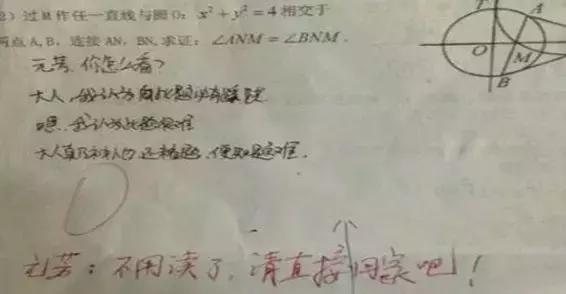 2) 过M作任一直线与圆O: x² + y² = 4 相交于
两点A, B, 连接AN, BN, 求证: ∠ANM = ∠BNM.
T
A
O
M
B
元芳, 你怎么看?
大人, 我认为此题必有蹊跷
嗯, 我认为此题很难
大人真乃神人也, 还未看题, 便知题难.
0
元芳: 不用读了, 请直接回家吧!